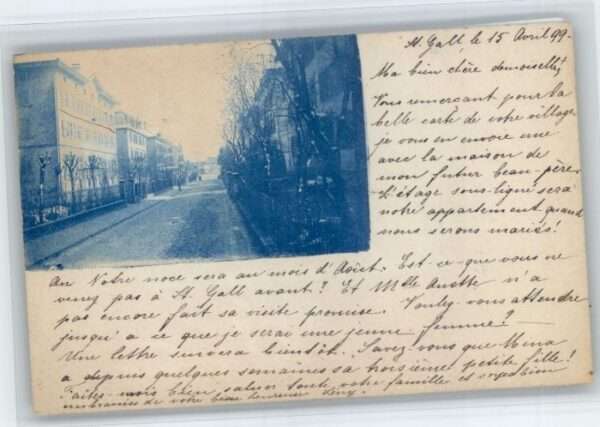 St. Gall, le 15 Avril 99.
Ma bien chère demoiselle!
Vous remerçant pour la
belle carte de votre village
je vous en envoie une
avec la maison de
mon futur beau-père.
L'étage sous-ligné sera
notre appartement quand
nous serons mariés!
Notre noce sera au mois d'Août. Est-ce-que vous ne
venez pas à St. Gall avant? Et Mlle n'a
pas encore fait sa visite promise. Voulez-vous attendre
jusqu'à ce que je serai une jeune femme?
Une lettre suivera bientôt. Savez-vous que
a depuis quelques semaines sa troisième petite fille!
Faites-mois bien saluer toute votre famille et
de votre